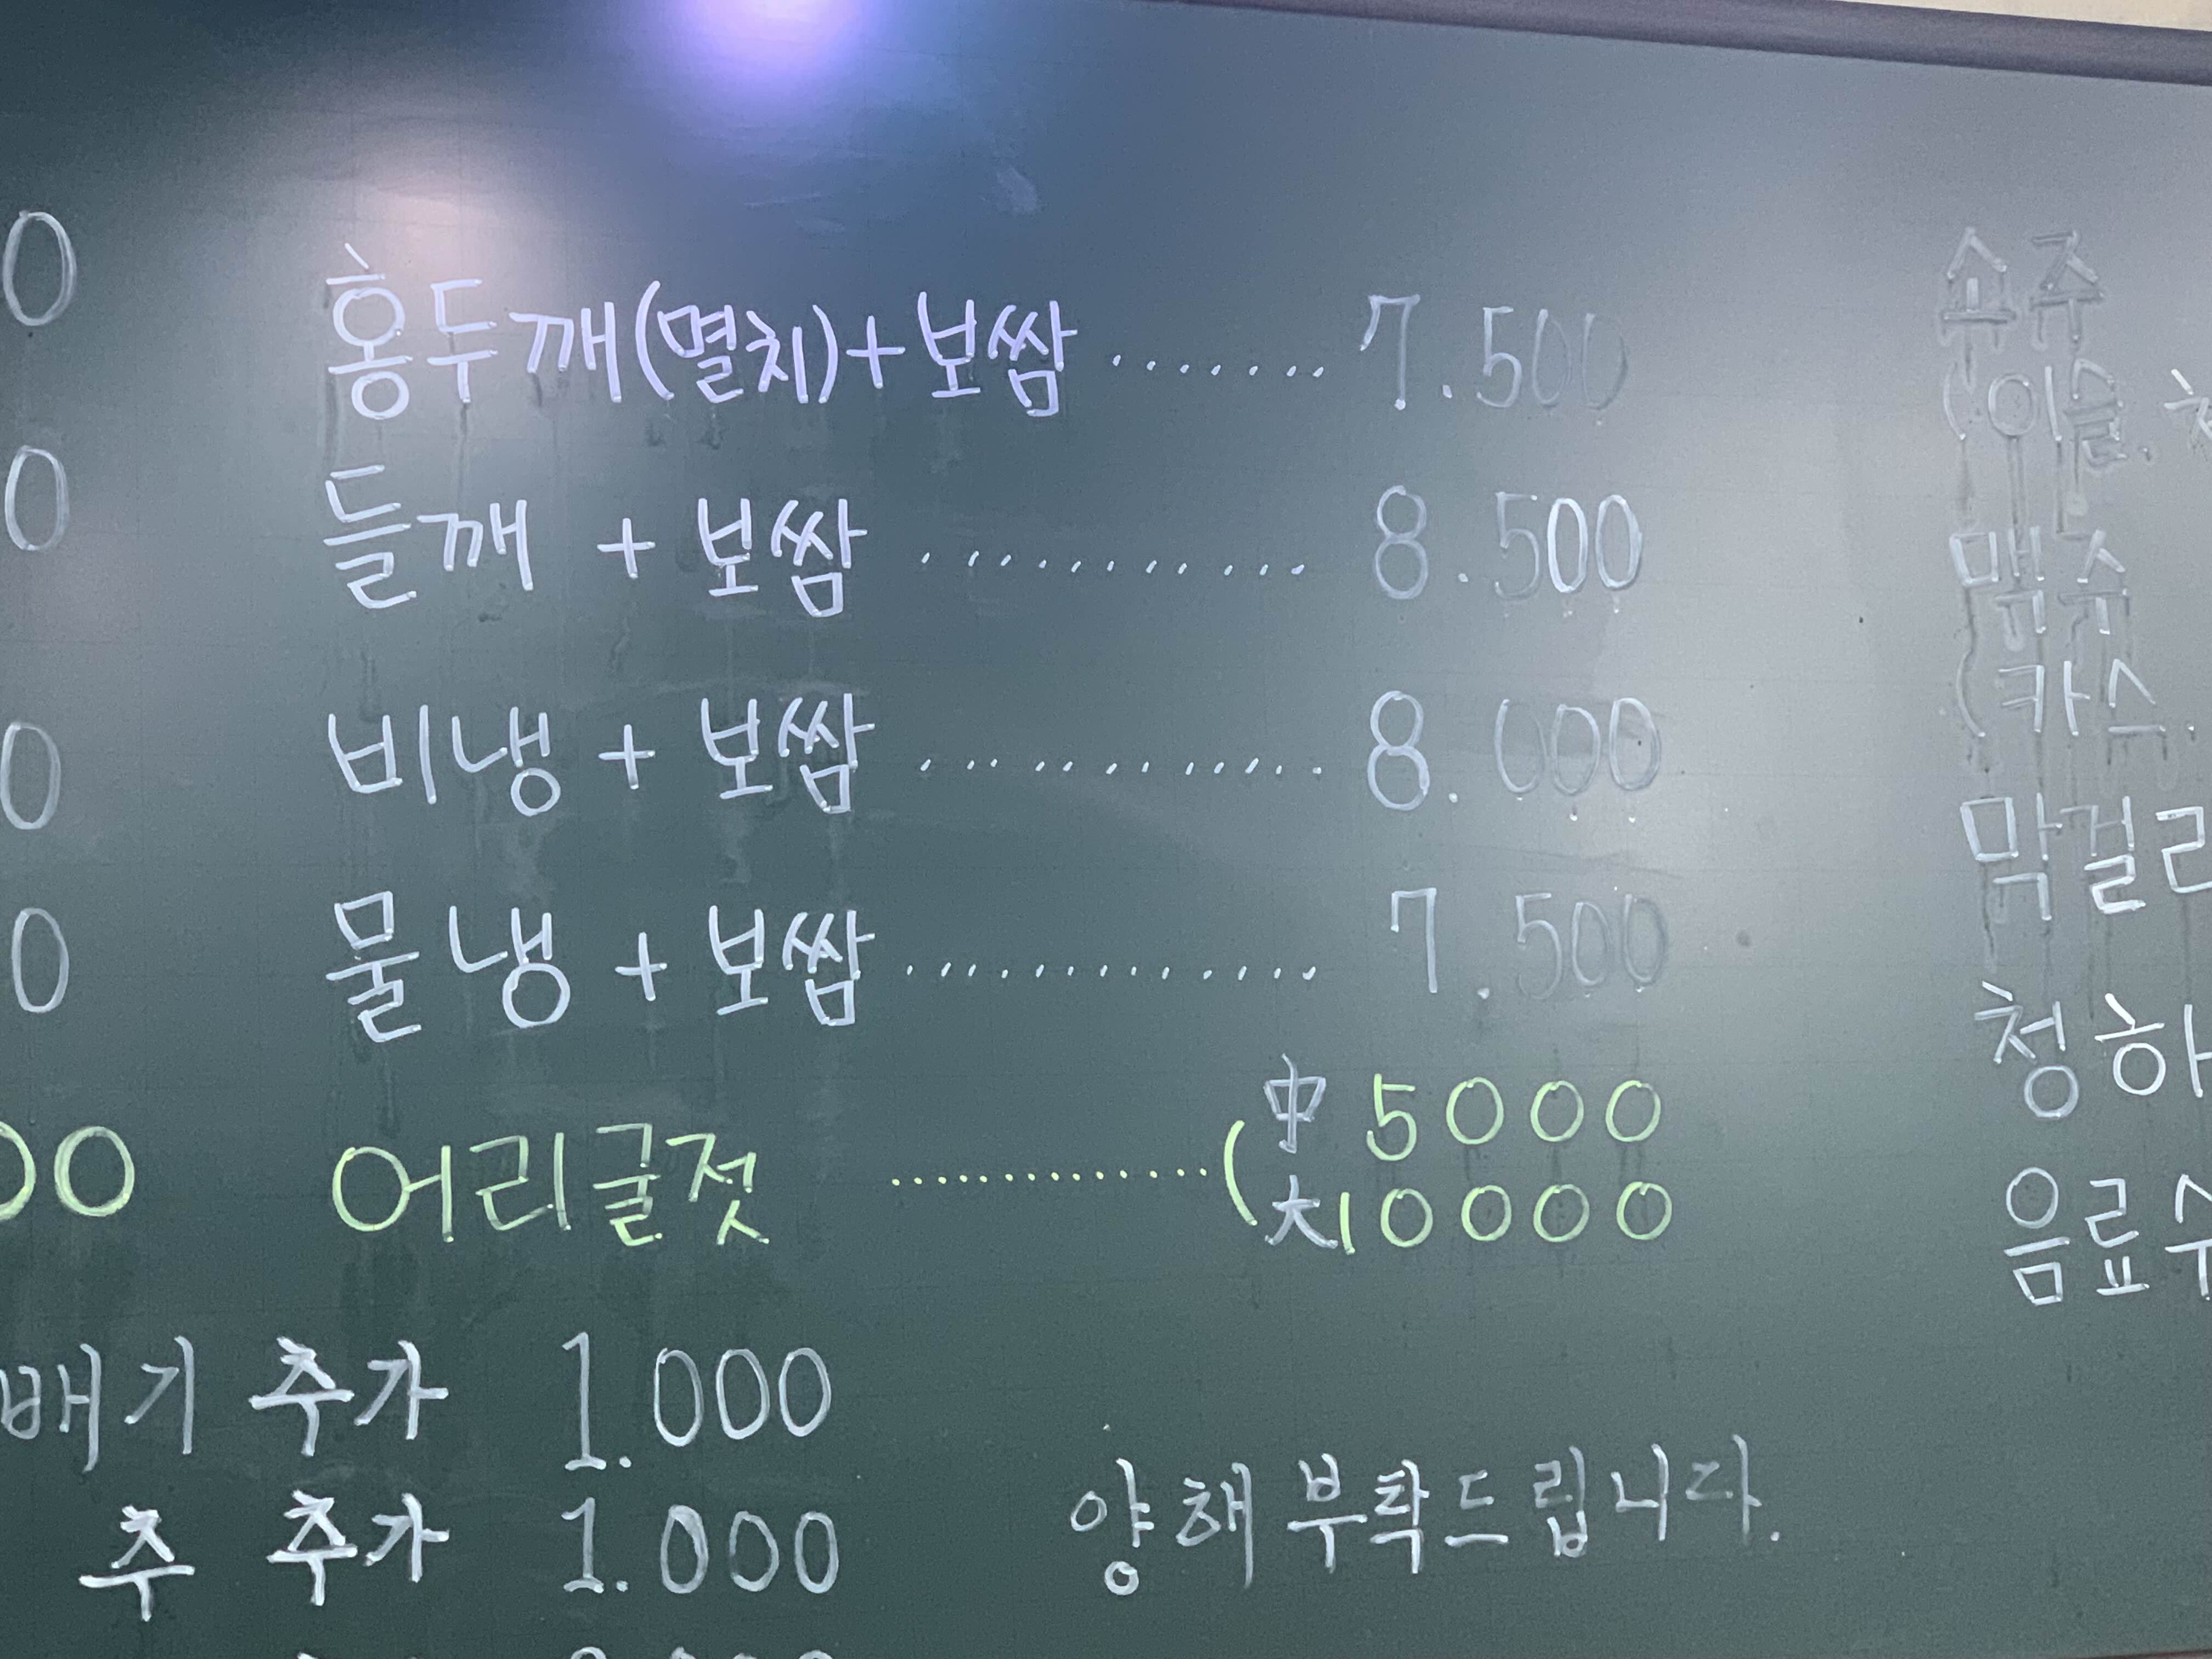 홍두깨(멸치)+보쌈 ....... 7.500
들깨 + 보쌈 ............ 8.500
비냉 + 보쌈 ............ 8.000
물냉 + 보쌈 ............. 7.500
어리굴젓 ............. ( 中 5000
大 10000
배기 추가 1.000
추 추가 1.000
양해 부탁드립니다.
소주
(이슬.
맥주
(카스.
막걸리
청하
음료수